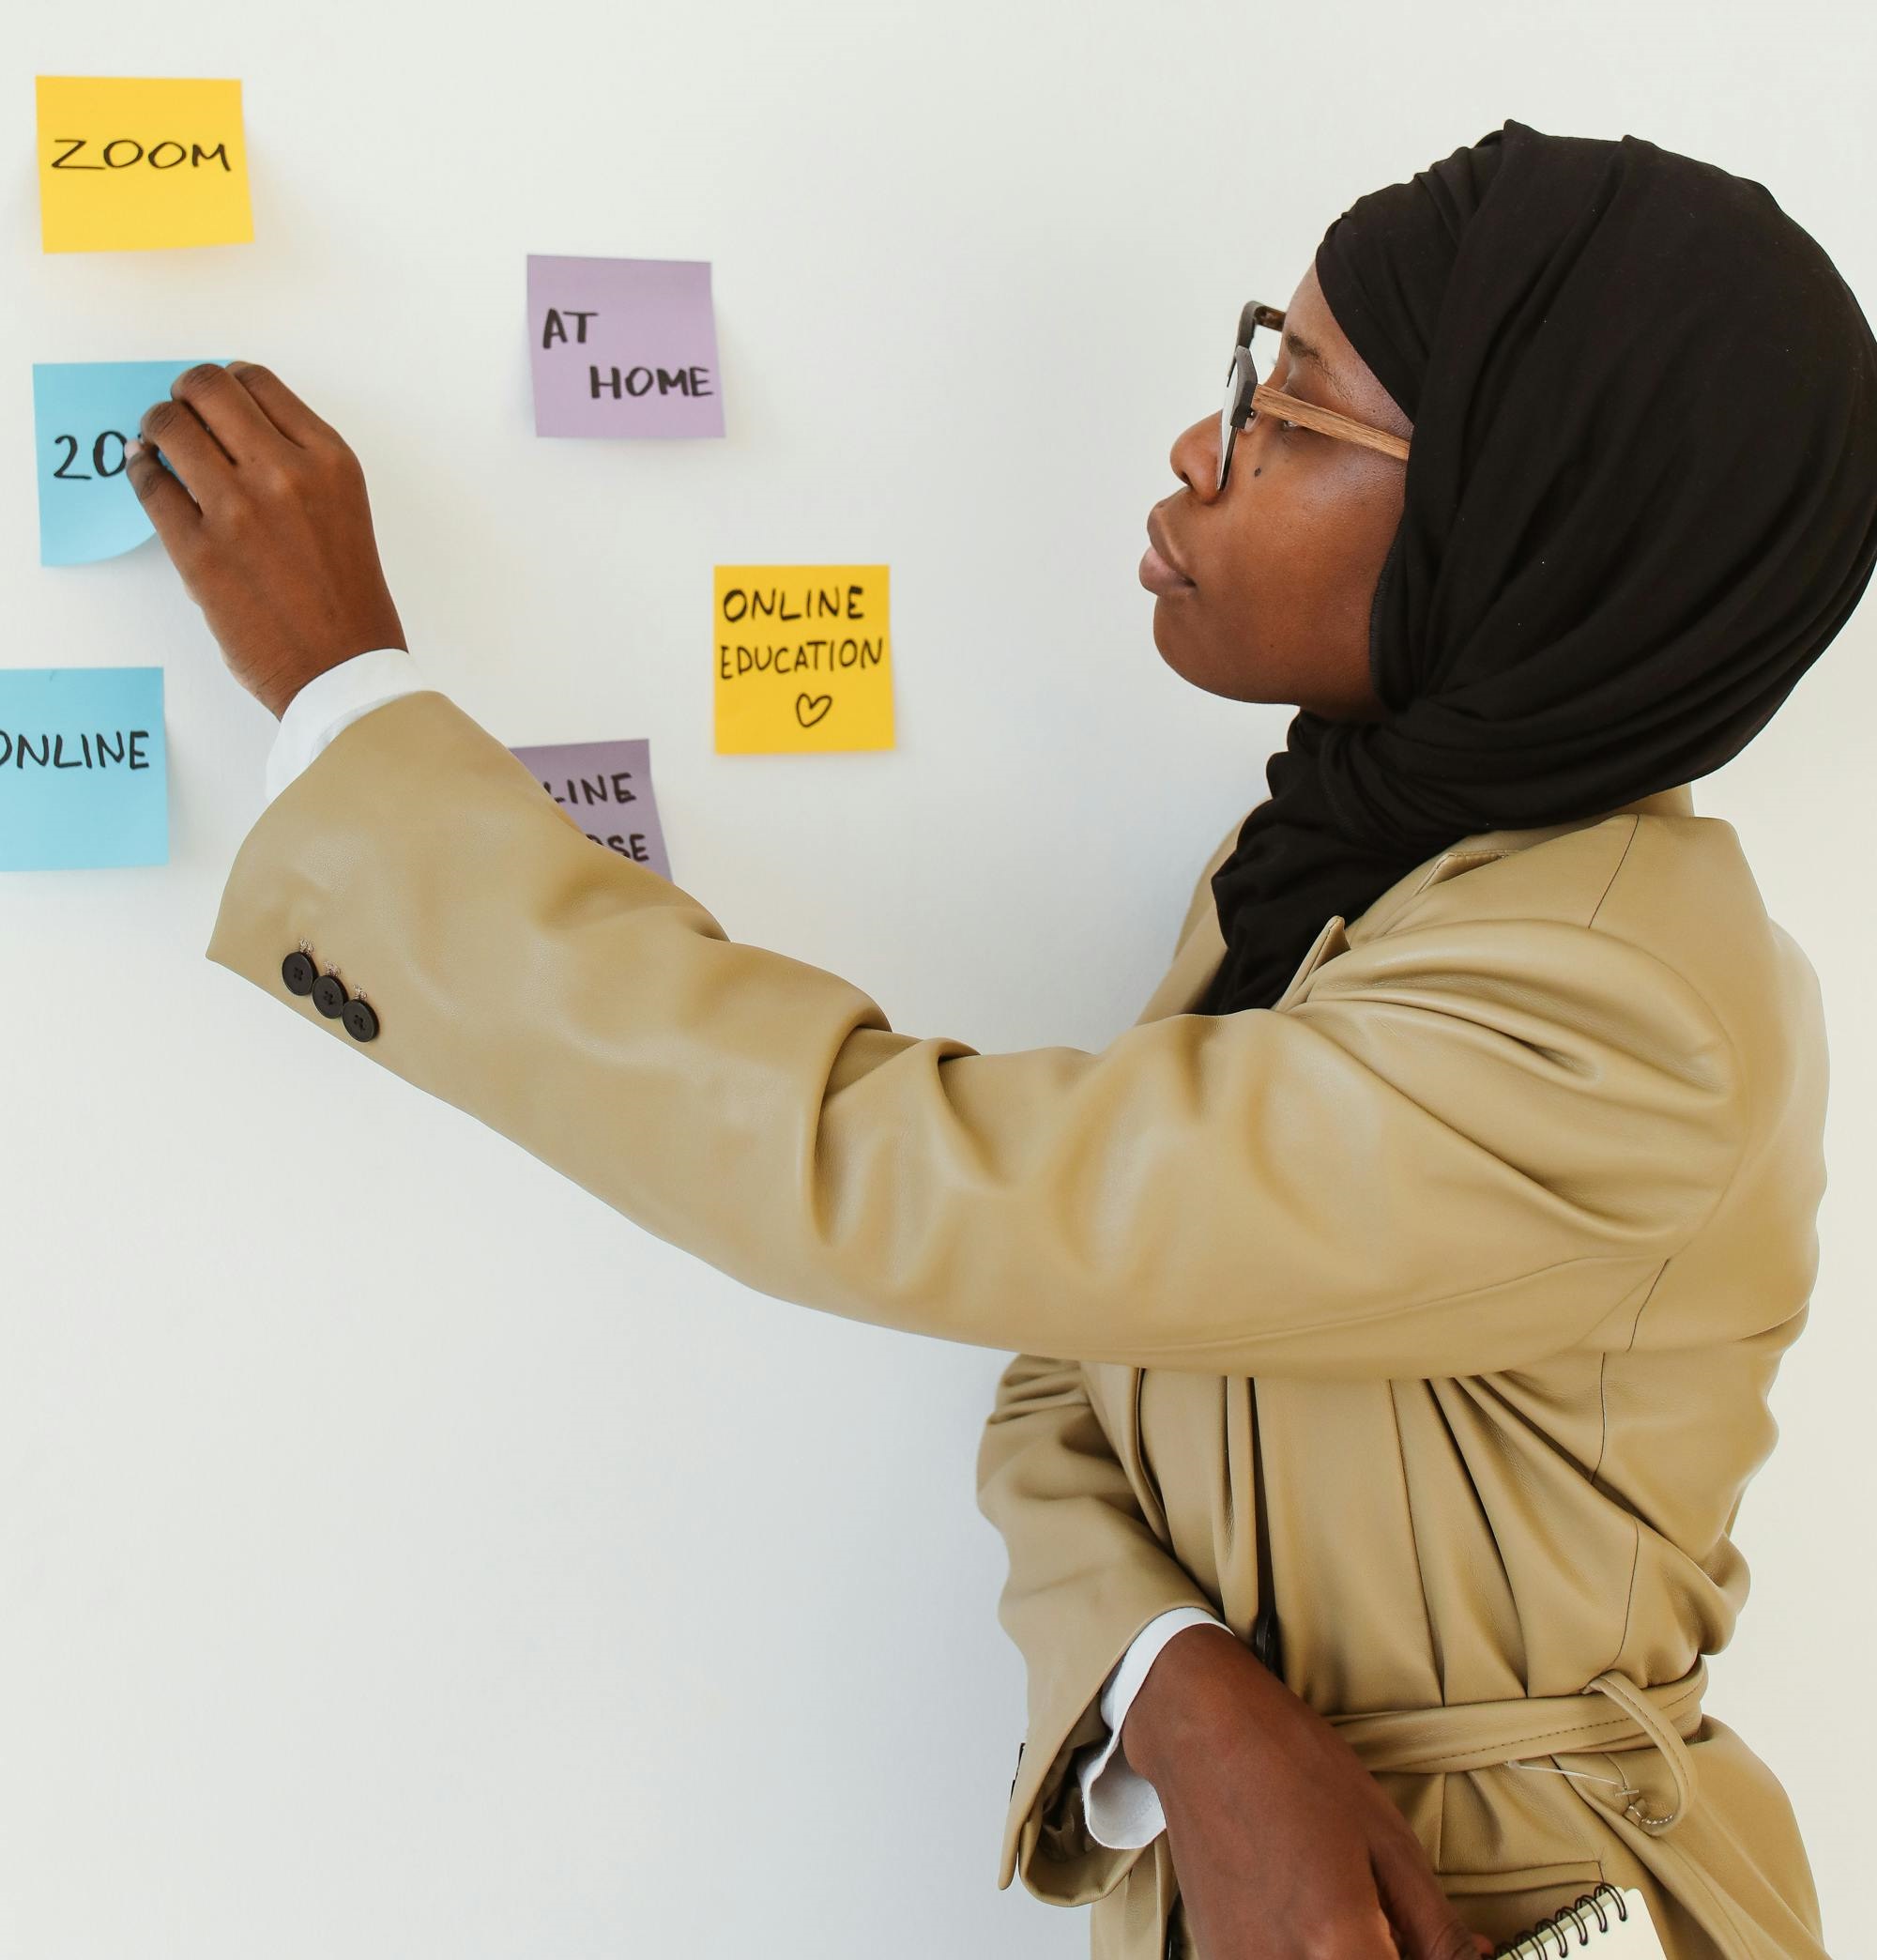 ZOOM
AT
HOME
20
ONLINE
EDUCATION
ONLINE
LINE